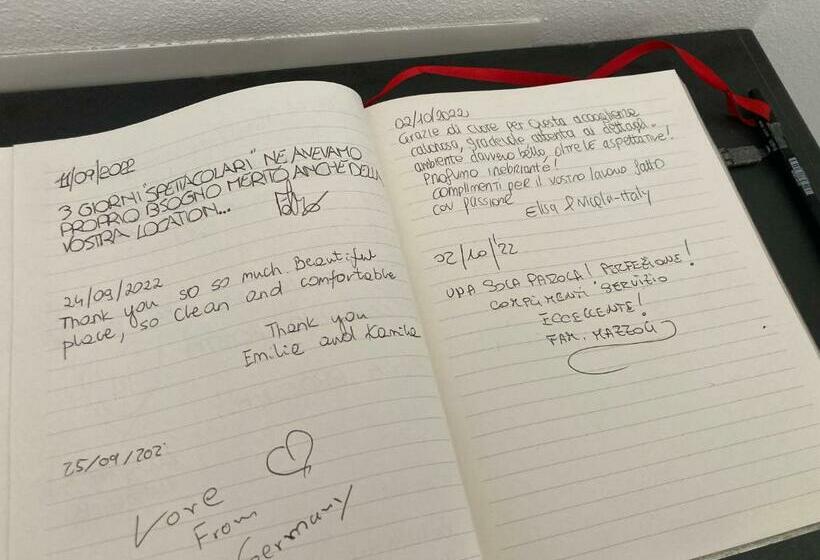 11/09/2022
3 GIORNI "SPETTACOLARI" NE AVEVAMO
PROPRIO BISOGNO MERITO ANCHE DELLA
VOSTRA LOCATION...
24/09/2022
Thank you so so much. Beautiful
place, so clean and comfortable
Thank you
Emilie and Kamila
25/09/202
Love
From
Germany
02/10/2022
Grazie di cuore per questa accoglienza
calorosa, gradevole attenta ai dettagli.
ambiente davvero bello, oltre le aspettative!
Profumo inebriante!
complimenti per il vostro lavoro fatto
con passione
Elisa & Nicola-Italy
02/10/'22
UNA SOLA PAROLA! PERFEZIONE!
COMPLIMENTI SERVIZIO
ECCELLENTE!
FAM. MAZZOLI